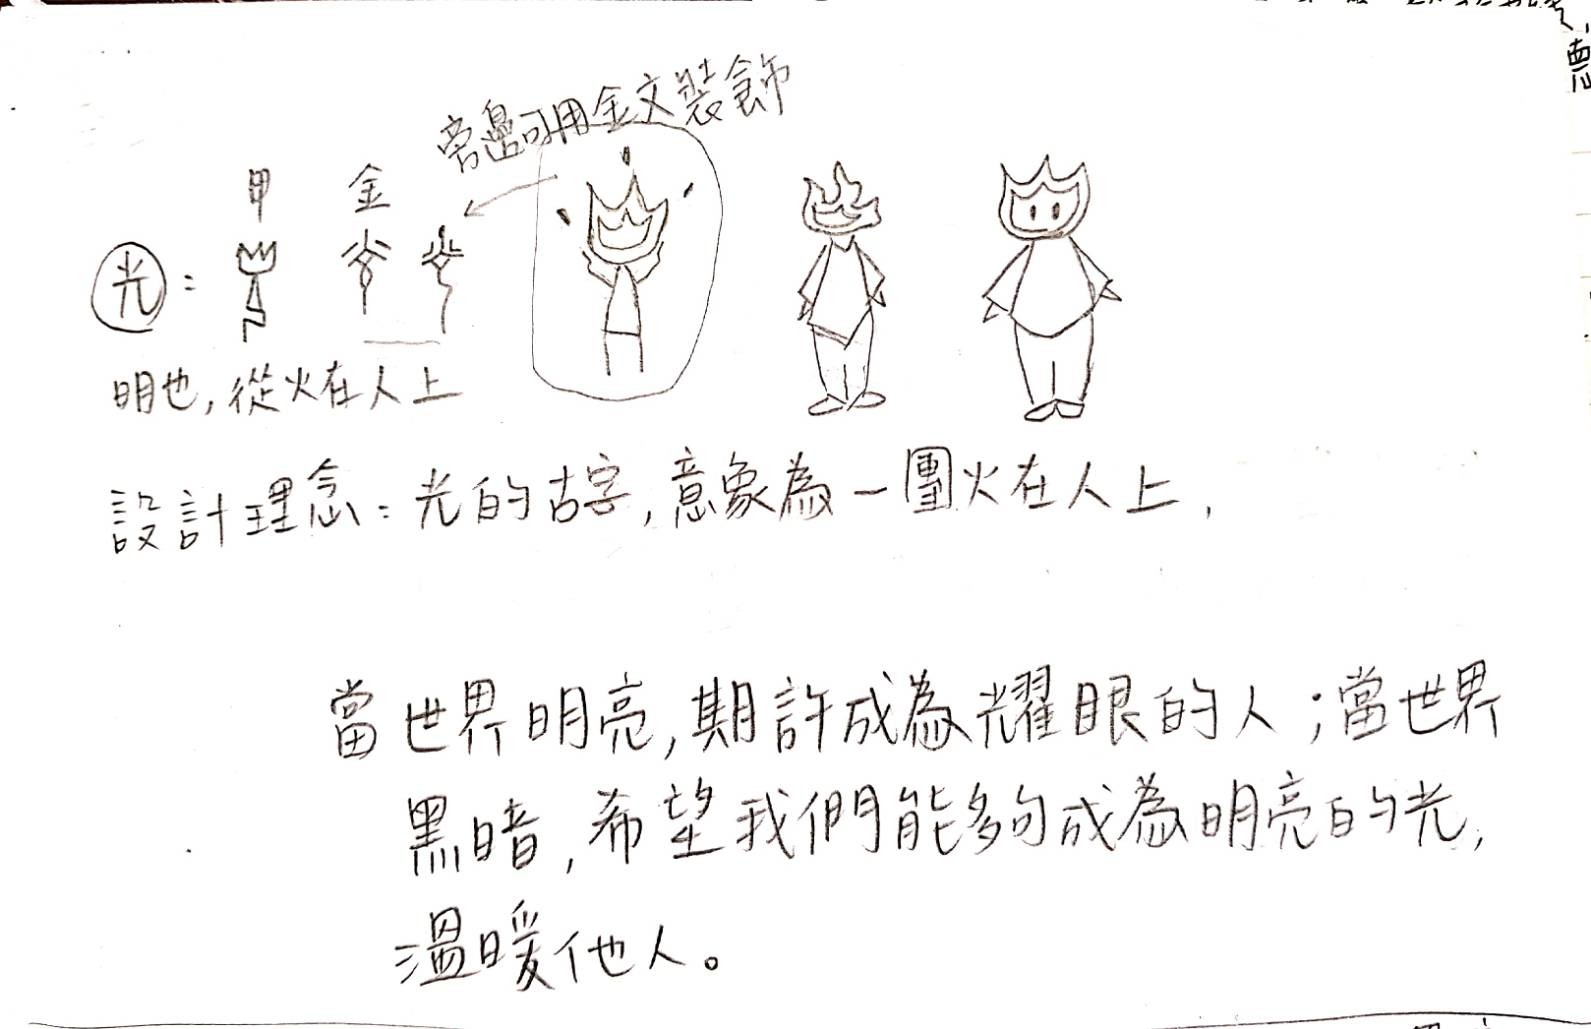 旁邊可用金文裝飾
甲 金
光:
明也,從火在人上
設計理念:光的古字,意象為一團火在人上,
當世界明亮,期許成為耀眼的人;當世界
黑暗,希望我們能夠成為明亮的光,
溫暖他人。